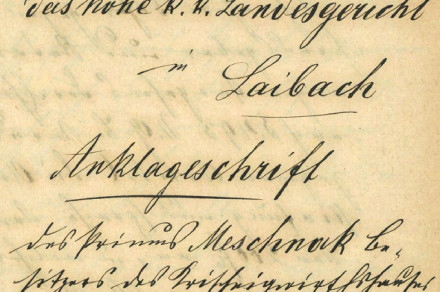 das hohe k. k. Landesgericht
in
Laibach
Anklageschrift
des Primus Meschnak Be-
sitzers des